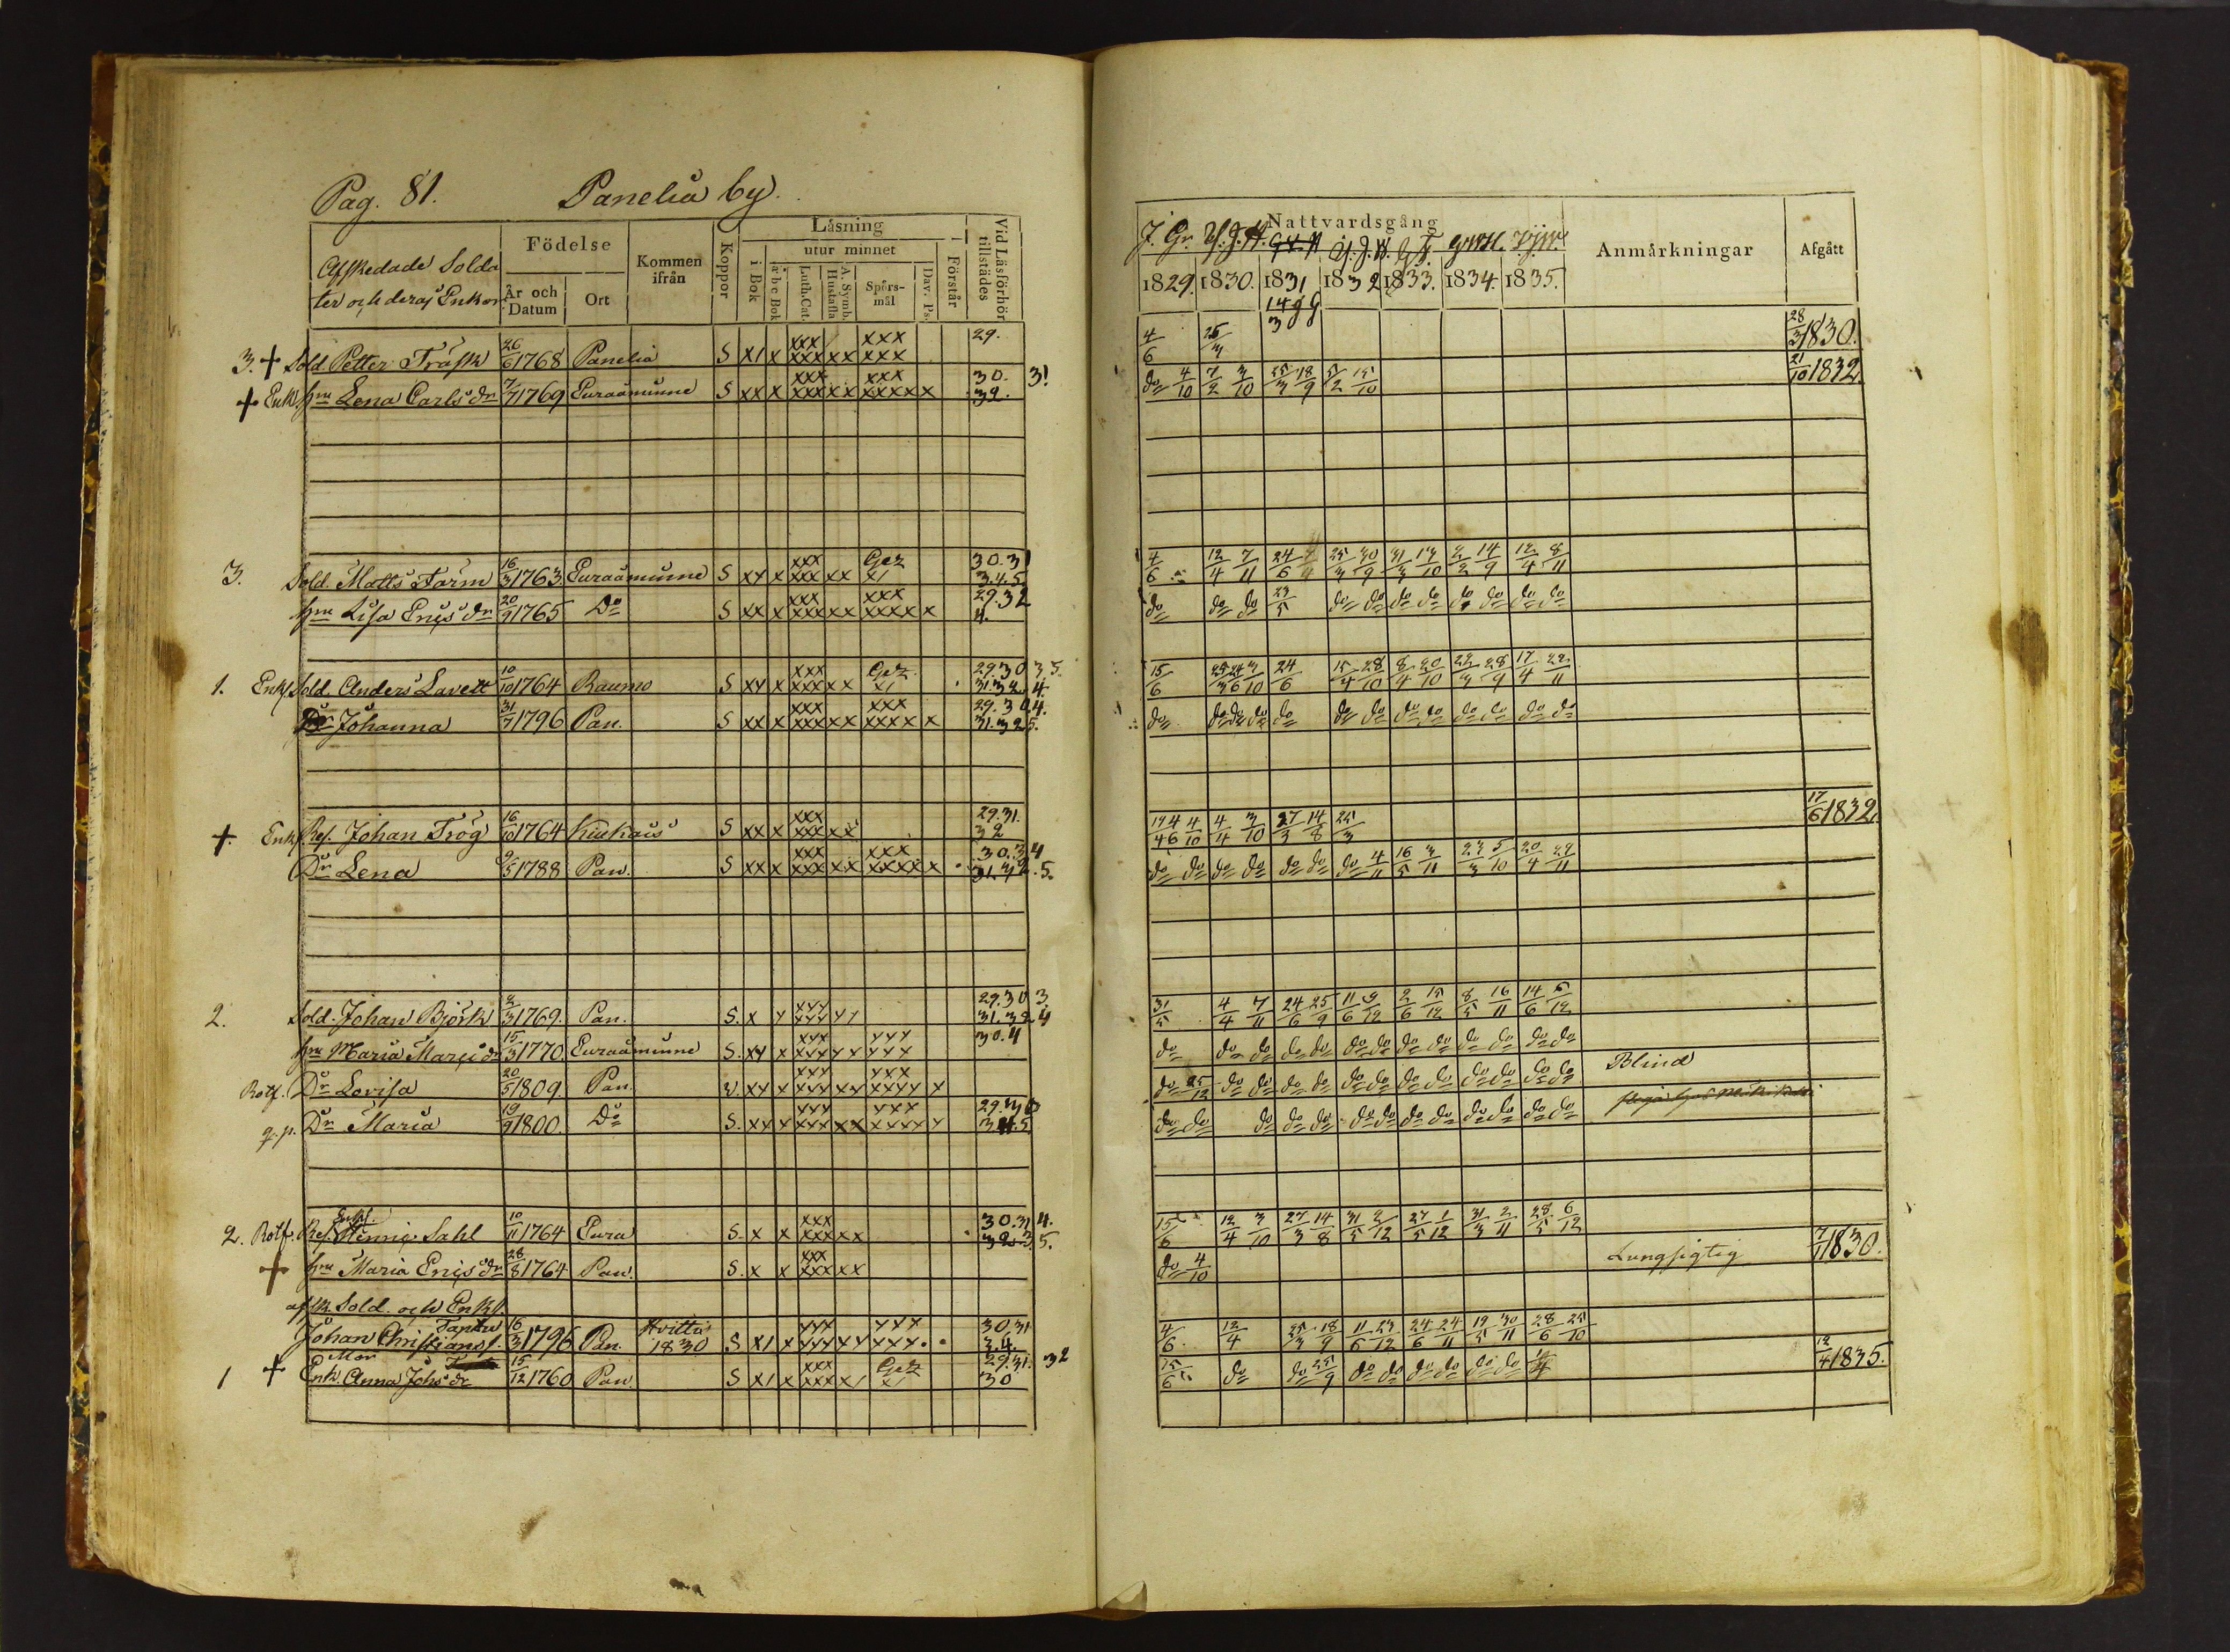 Pag. 81. Panelia by.
Afskedade Solda
ter och deras Enkor
Födelse
År och Datum
Ort
Kommen ifrån
Koppor
Läsning
i Bok
utur minnet
a b c Bok
Luth. Cat.
A. Symb. Hustafla
Spörs-mål
Dav. Ps.
Förstår
Vid Läsförhör tillstädes
3. + Sold. Petter Träsk 26/6 1768 Panelia S XI X XXX XXX XX XXX XXX 29.
+ Enk. hu Lena Carls dr 7/7 1769 Euraåminne S XX X XXX XXX XX XXX XXXX X 30. 31 32.
3. Sold. Matts Farm 16/3 1763 Euraåminne S XX X XXX XXX XX Gez XI 30.31 3.4.5.
hu Lisa Erics dr 20/9 1765 Do S XX X XXX XXX XX XXX XXXX X 29.32 4.
1. Enkl. Sold. Anders Lavett 10/10 1764 Raumo S XX X XXX XXX XX Gez XI 29.30 3.5. 31.32 4.
Dr Johanna 31/7 1796 Pan. S XX X XXX XXX XX XXX XXXX X 29.30 4. 31.32 5.
+. Enkl. Res. Johan Trög 16/10 1764 Kiukais S XX X XXX XXX XX 29.31. 32
Dr Lena 9/5 1788 Pan. S XX X XXX XXX XX XXX XXXX X 30.34 31.32.5.
2. Sold. Johan Björk 2/3 1769. Pan. S. X X XXX XXX XX 29.30 3. 31.32 4
hu Maria Marcs dr 15/3 1770. Euraåminne S. XX X XXX XXX XX XXX XXX 30.4
Rotf. Dr Lovisa 20/5 1809. Pan. v. XX X XXX XXX XX XXX XXXX X
q. p. Dr Maria 19/9 1800. Do S. XX X XXX XXX XX XXX XXXX X 29.30
2. Rotf. Res. Enkl. Hennic Sahl 10/11 1764 Eura S. X X XXX XXX XX 30.31 4. 32.3 5.
+ hu Maria Erics dr 28/8 1764 Pan. S. X X XXX XXX XX
afsk. Sold. och Enkl.
Johan Christians s. 6/3 1796 Pan. Hvittis 1830 S XI X XXX XXX XX XXX XXX 30.31 3.4.
1 + Mor Enk. Anna Johs dr 15/12 1760 Pan. S XI X XXX XXX XI Gez XI 29.31. 32 30
Nattvardsgång
J. Gr.
1829. 1830. 1831 1832 1833. 1834. 1835.
Anmärkningar
Afgått
4/6 25/3 14/3 28/3 1830.
do 4/10 7/2 3/10 25/3 18/9 5/2 15/10 21/10 1832.
4/6 12/4 7/11 24/6 25/3 30/9 31/3 13/10 2/2 14/9 12/4 8/11
do do do 23/5 do do do do do do do do
15/6 25/3 24/6 3/10 24/6 15/4 28/10 8/4 20/10 22/3 28/9 17/4 22/11
do do do do do do do do do do do do do
19/4 4/6 4/10 4/4 3/10 27/3 14/8 25/3 17/6 1832.
do do do do do do do 4/11 16/5 3/11 23/3 5/10 20/4 22/11
31/5 4/4 7/11 24/6 25/9 11/6 9/12 2/6 15/12 8/5 16/11 14/6 6/12
do do do do do do do do do do do do do
do 25/12 do do do do do do do do do do do do Blind
do do do do do do do do do do do do do
15/6 12/4 3/10 27/3 14/8 31/5 2/12 27/5 1/12 31/3 2/11 28/5 6/12
do 4/10 Lungsigtig 7/1 1830.
4/6. 12/4 25/3 18/9 11/6 23/12 24/6 24/11 19/5 30/11 28/6 25/10
15/6 do do 25/9 do do do do do do 12/4 1835.